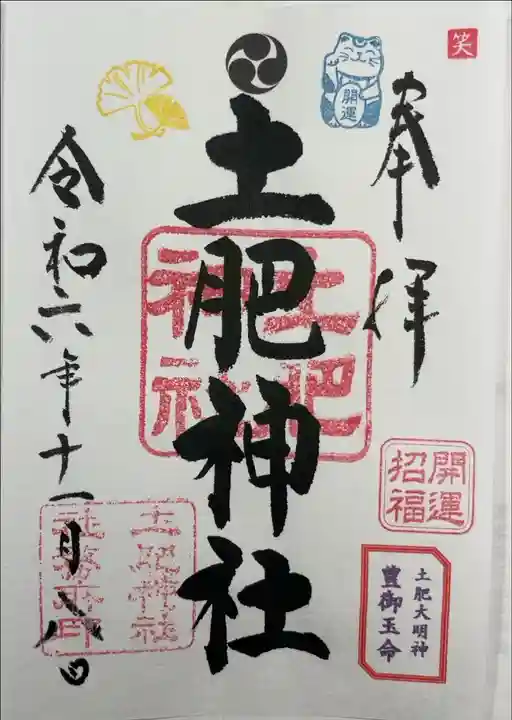 笑
奉拝
開運
開運
招福
土肥大明神
豊御玉命
土肥神社
土肥
神社
令和六年十一月八日
土肥神社
社務所印